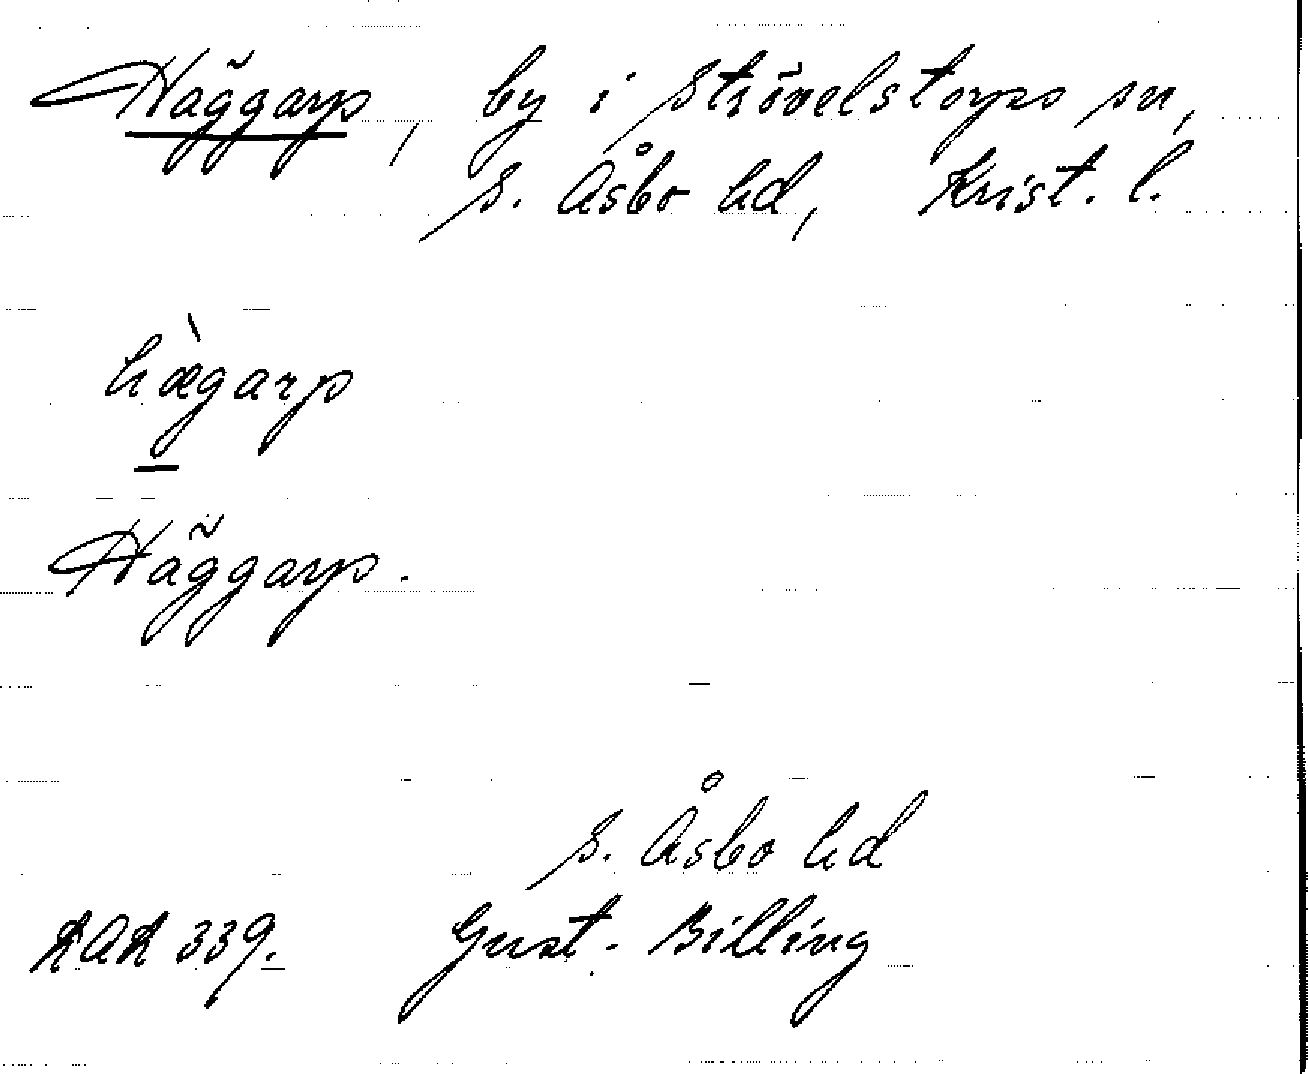 Häggarp, by i Strövelstorps sn,
S. Åsbo hd, Krist. l.
hæ̀garp
Häggarp.
S. Åsbo hd
RAÄ 339. Gust. Billing